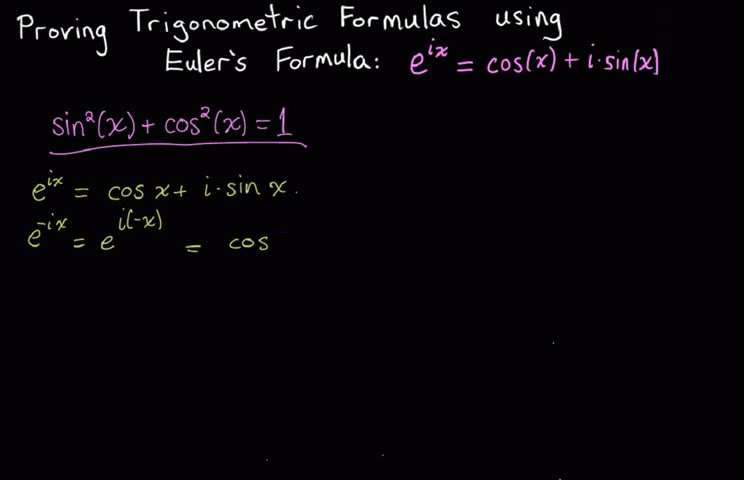 Proving Trigonometric Formulas using
Euler's Formula: e^{ix} = cos(x) + i·sin(x)
sin²(x) + cos²(x) = 1
e^{ix} = cos x + i·sin x.
e^{-ix} = e^{i(-x)} = cos